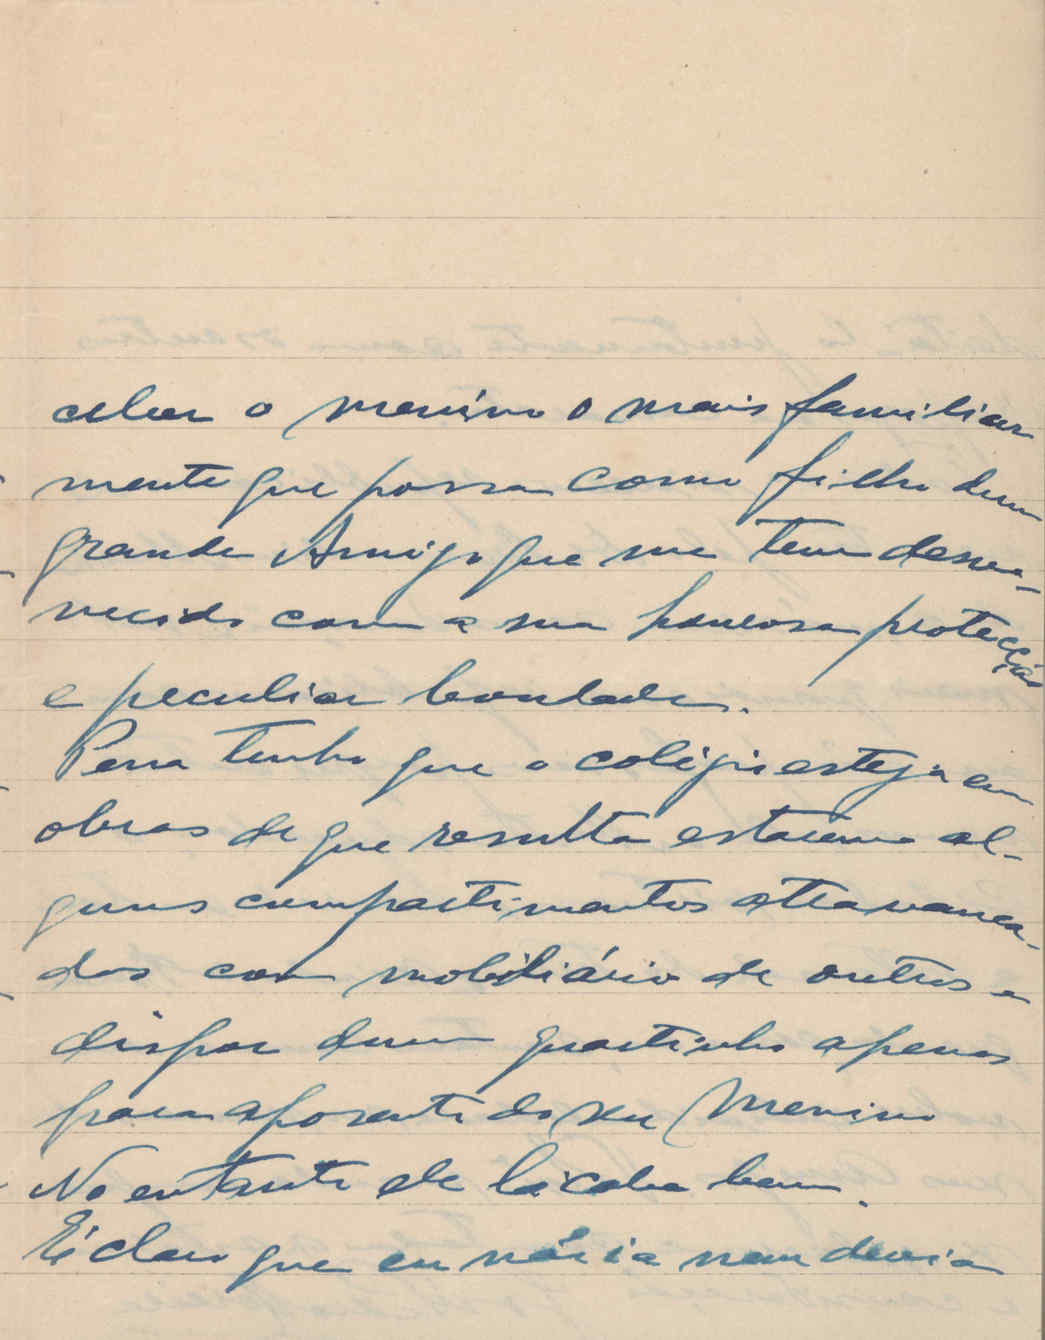 ceber o menino o mais familiar
mente que possa como filho dum
grande Amigo que me tem desva-
necido com a sua honrosa protecção
e peculiar bondade.
Pena tenho que o colégio esteja em
obras de que resulta estarem al-
guns compartimentos atravanca-
dos com mobiliário de outros e
dispor dum quartinho apenas
para aposento do seu Menino
No entanto ele lá cabe bem.
É claro que eu não ia nem devia